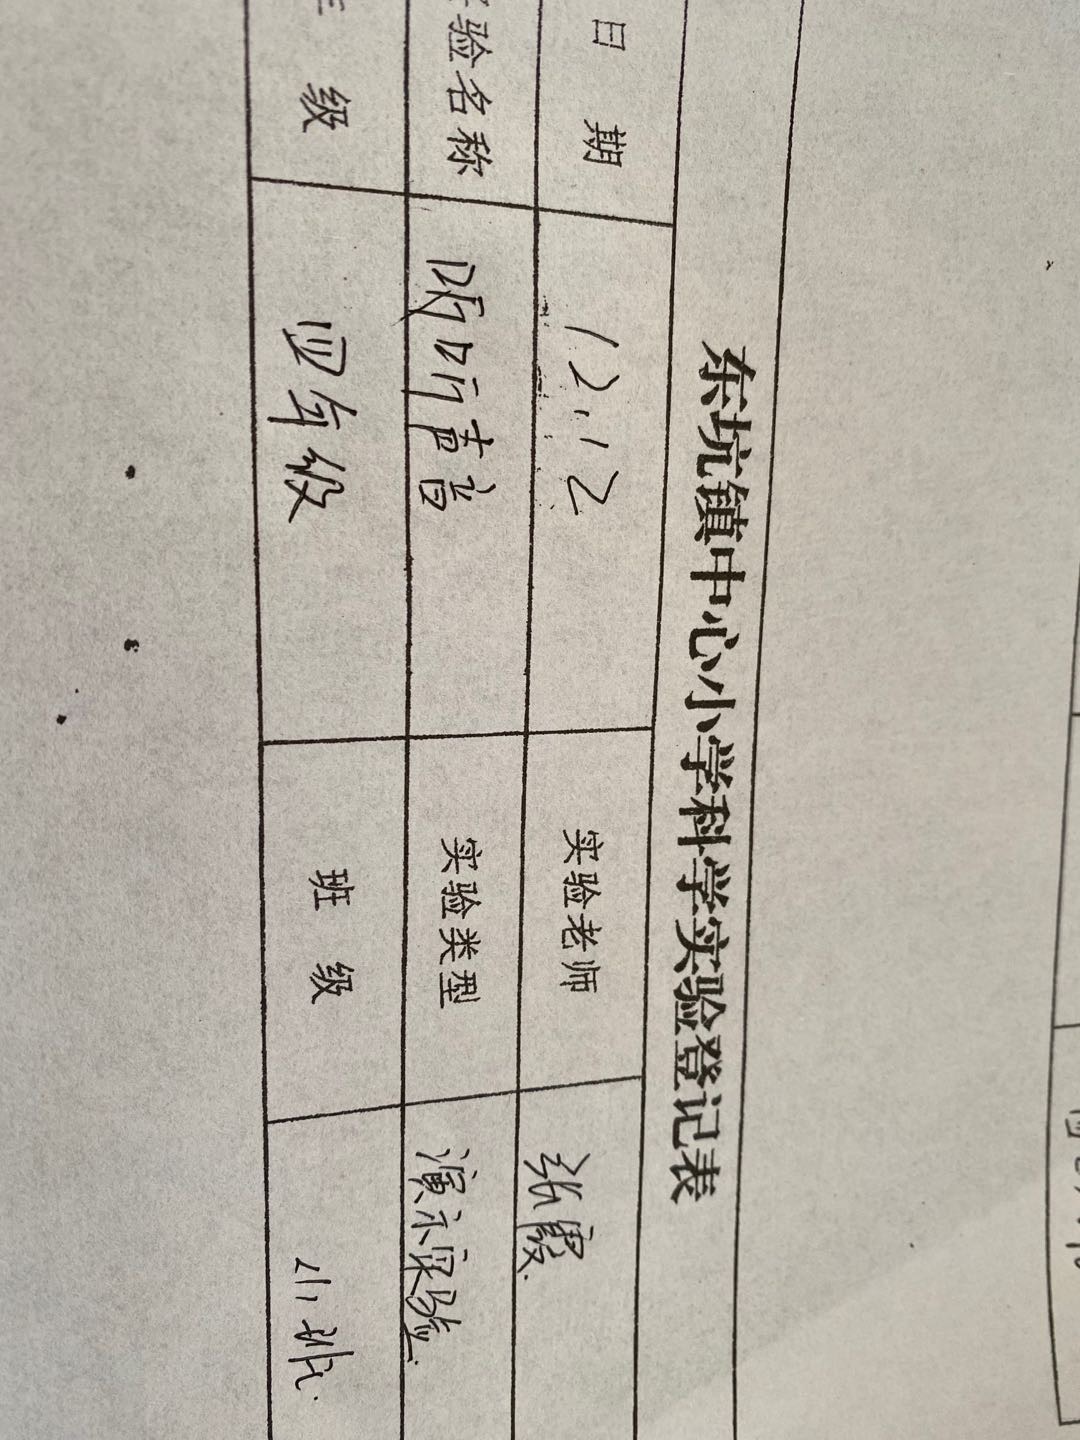 东坑镇中心小学科学实验登记表
日 期 12.12 实验老师 张霞.
验名称 听听声音 实验类型 演示实验.
级 四年级 班 级